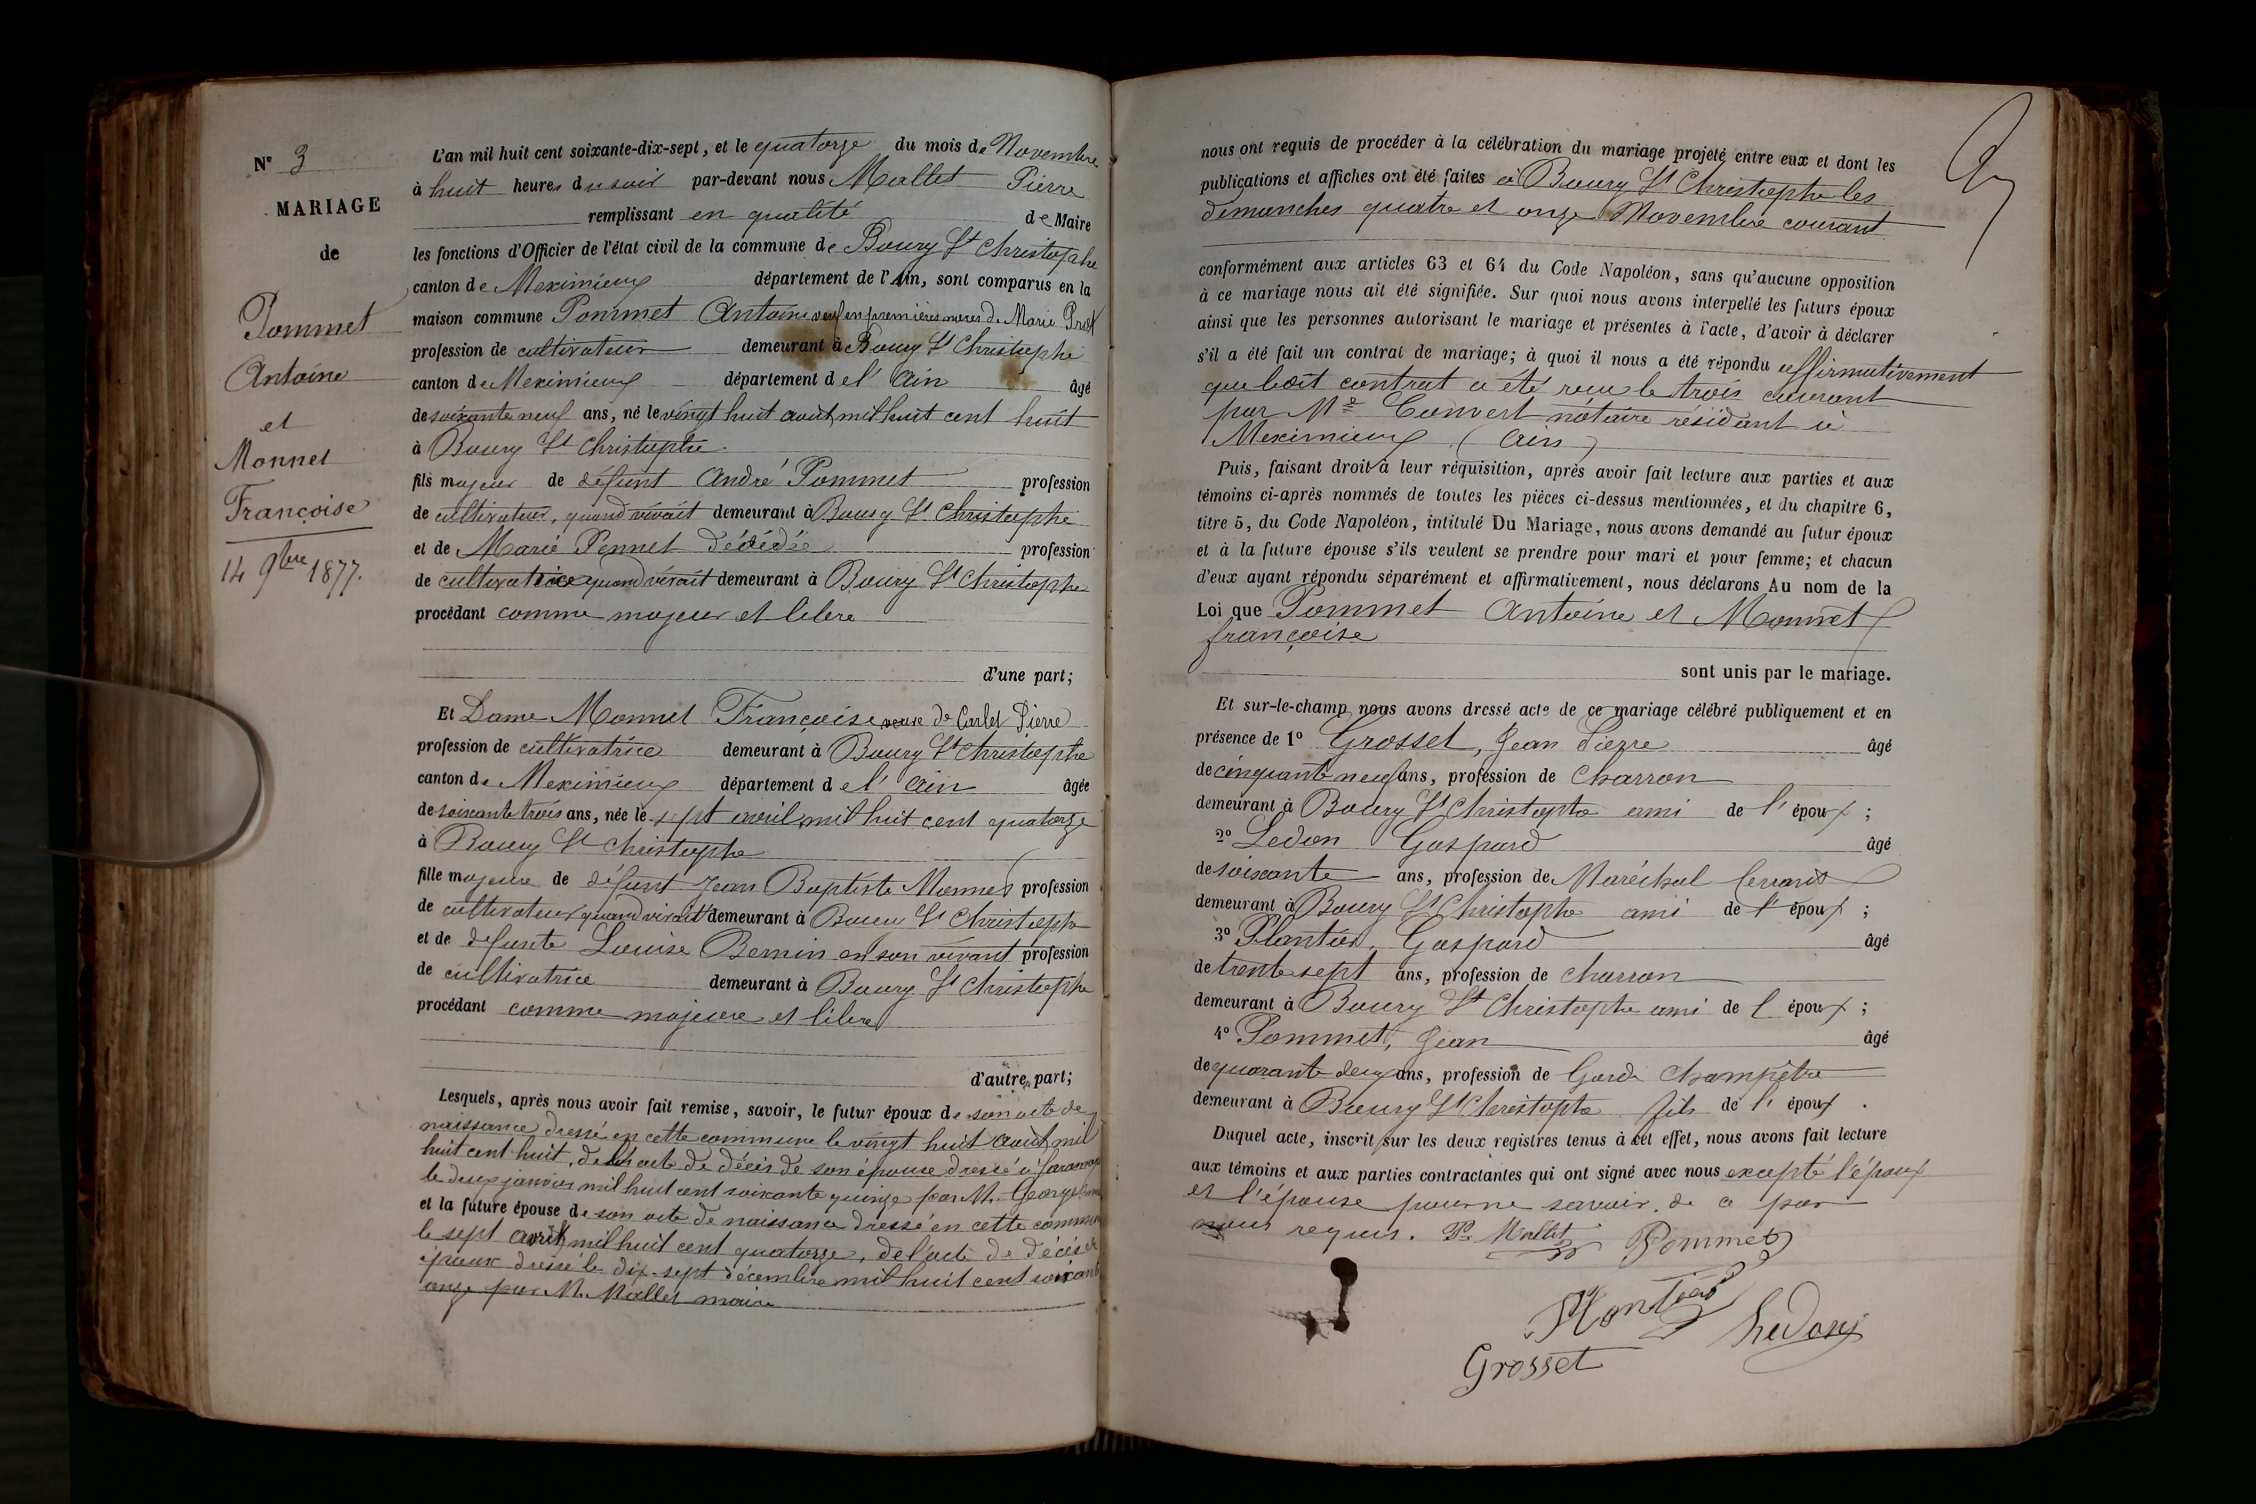 N° 3
MARIAGE
de
Pommet
Antoine
et
Monnet
Françoise
14 9bre 1877.
L'an mil huit cent soixante-dix-sept, et le quatorze du mois de Novembre
à huit heures du soir par-devant nous Mallet Pierre
remplissant en qualité de Maire
les fonctions d'Officier de l'état civil de la commune de Bourg St Christophe
canton de Meximieux département de l'Ain, sont comparus en la
maison commune Pommet Antoine veuf en premières noces de Marie
profession de cultivateur demeurant à Bourg St Christophe
canton de Meximieux département de l'Ain âgé
de soixante neuf ans, né le vingt huit août mil huit cent huit
à Bourg St Christophe
fils majeur de défunt André Pommet profession
de cultivateur, quand vivait demeurant à Bourg St Christophe
et de Marie Pennet décédée profession
de cultivatrice quand vivait demeurant à Bourg St Christophe
procédant comme majeur et libre
d'une part;
Et Dame Monnet Françoise veuve de Carlet Pierre
profession de cultivatrice demeurant à Bourg St Christophe
canton de Meximieux département de l'Ain âgée
de soixante trois ans, née le sept avril mil huit cent quatorze
à Bourg St Christophe
fille majeure de défunt Jean Baptiste Monnet profession
de cultivateur quand vivait demeurant à Bourg St Christophe
et de défunte Louise Bernin en son vivant profession
de cultivatrice demeurant à Bourg St Christophe
procédant comme majeure et libre
d'autre part;
Lesquels, après nous avoir fait remise, savoir, le futur époux de son acte de
naissance dressé en cette commune le vingt huit août mil
huit cent huit, de l'acte de décès de son épouse dressé à
le deux janvier mil huit cent soixante quinze par M. George
et la future épouse de son acte de naissance dressé en cette commune
le sept avril mil huit cent quatorze, de l'acte de décès
époux dressé le dix-sept décembre mil huit cent soixante
onze par M. Mallet maire
nous ont requis de procéder à la célébration du mariage projeté entre eux et dont les
publications et affiches ont été faites à Bourg St Christophe les
dimanches quatre et onze Novembre courant
conformément aux articles 63 et 64 du Code Napoléon, sans qu'aucune opposition
à ce mariage nous ait été signifiée. Sur quoi nous avons interpellé les futurs époux
ainsi que les personnes autorisant le mariage et présentes à l'acte, d'avoir à déclarer
s'il a été fait un contrat de mariage; à quoi il nous a été répondu affirmativement
que ledit contrat a été reçu le trois courant
par Me Convert notaire résidant à
Meximieux (Ain)
Puis, faisant droit à leur réquisition, après avoir fait lecture aux parties et aux
témoins ci-après nommés de toutes les pièces ci-dessus mentionnées, et du chapitre 6,
titre 5, du Code Napoléon, intitulé Du Mariage, nous avons demandé au futur époux
et à la future épouse s'ils veulent se prendre pour mari et pour femme; et chacun
d'eux ayant répondu séparément et affirmativement, nous déclarons Au nom de la
Loi que Pommet Antoine et Monnet
françoise
sont unis par le mariage.
Et sur-le-champ nous avons dressé acte de ce mariage célébré publiquement et en
présence de 1° Grosset, Jean Pierre âgé
de cinquante neuf ans, profession de Charron
demeurant à Bourg St Christophe ami de l'époux;
2° Ledon Gaspard âgé
de soixante ans, profession de Maréchal ferrant
demeurant à Bourg St Christophe ami de l'époux;
3° Plantier, Gaspard âgé
de trente sept ans, profession de charron
demeurant à Bourg St Christophe ami de l'époux;
4° Pommet, Jean âgé
de quarante deux ans, profession de Garde Champêtre
demeurant à Bourg St Christophe fils de l'époux.
Duquel acte, inscrit sur les deux registres tenus à cet effet, nous avons fait lecture
aux témoins et aux parties contractantes qui ont signé avec nous excepté l'époux
et l'épouse pour ne savoir, de ce par
nous requis. P. Mallet Pommet
Plantier Ledon
Grosset